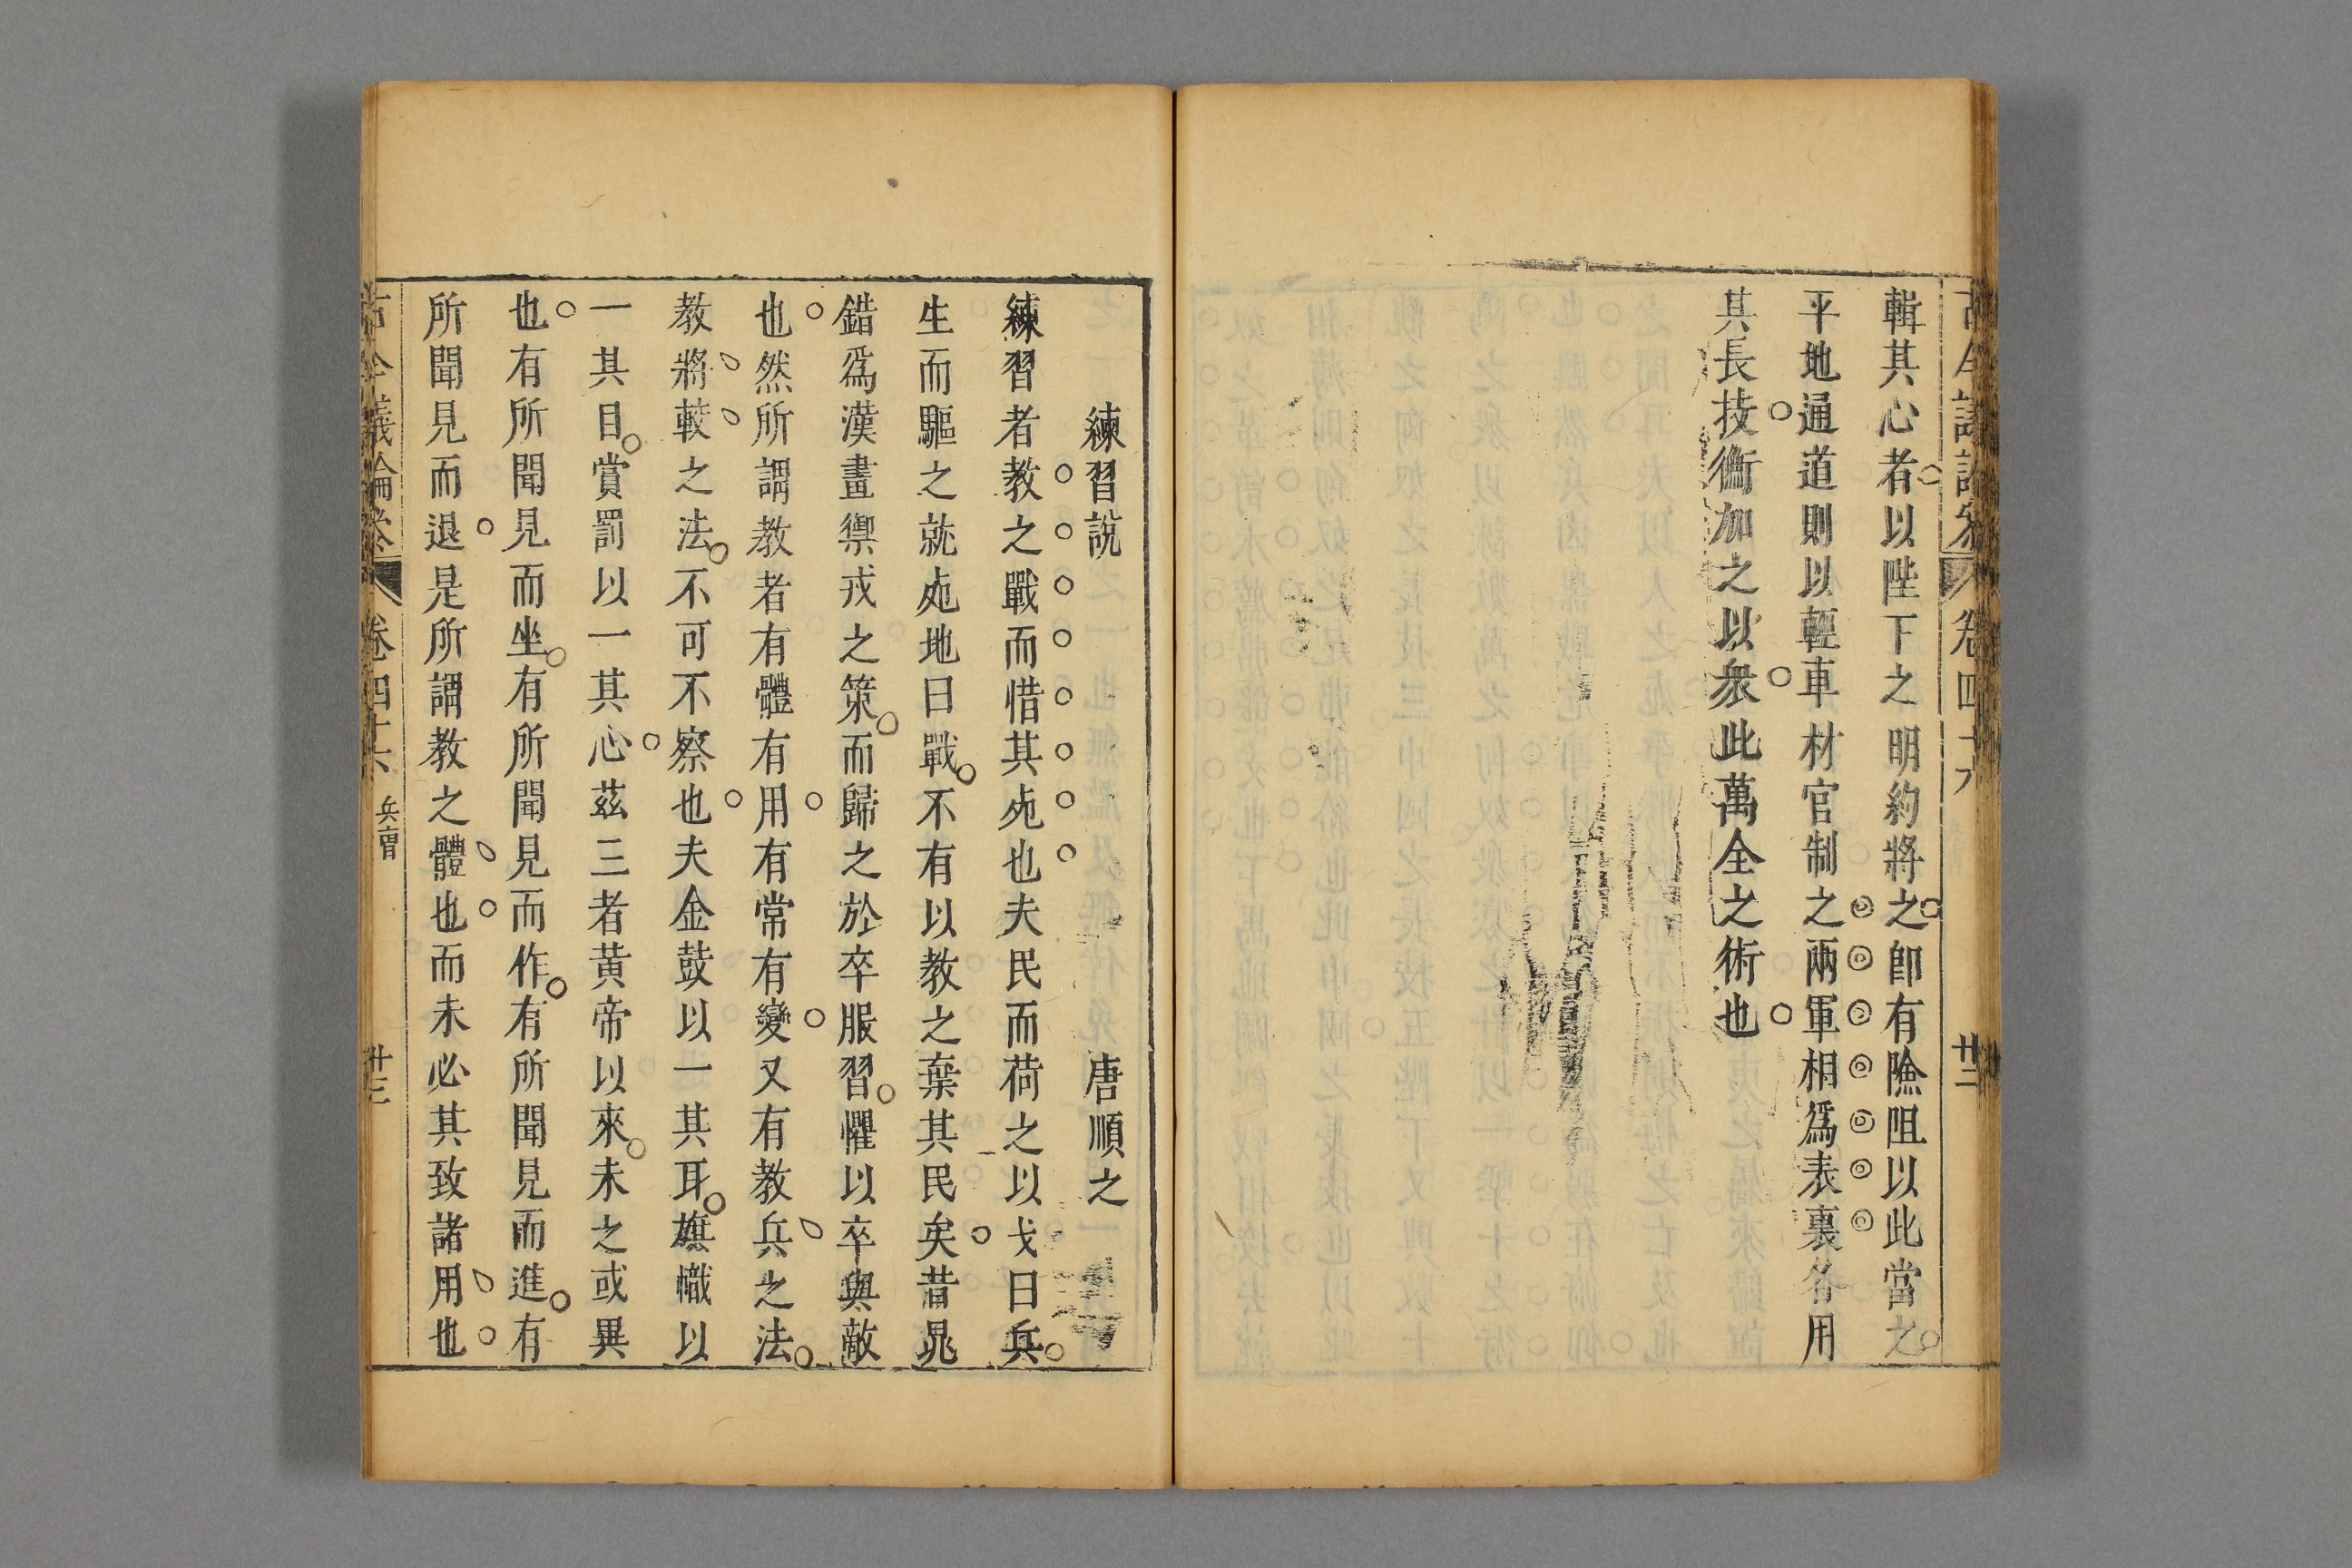 卷四十六
廿二
輯其心者以陛下之明約將之卽有險阻以此當之
平地通道則以輕車材官制之兩軍相爲表裏各用
其長技衡加之以衆此萬全之術也
練習說　唐順之
練習者教之戰而惜其𣦸也夫民而荷之以戈曰兵
生而驅之就𣦸地曰戰不有以教之棄其民矣昔鼂
錯爲漢畫禦戎之策而歸之於卒服習懼以卒與敵
也然所謂教者有體有用有常有變又有教兵之法
教將較之法不可不察也夫金鼓以一其耳旗幟以
一其目賞罰以一其心茲三者黃帝以來未之或異
也有所聞見而坐有所聞見而作有所聞見而進有
所聞見而退是所謂教之體也而未必其致諸用也
古今議論叅
卷四十六
兵曹
廿三